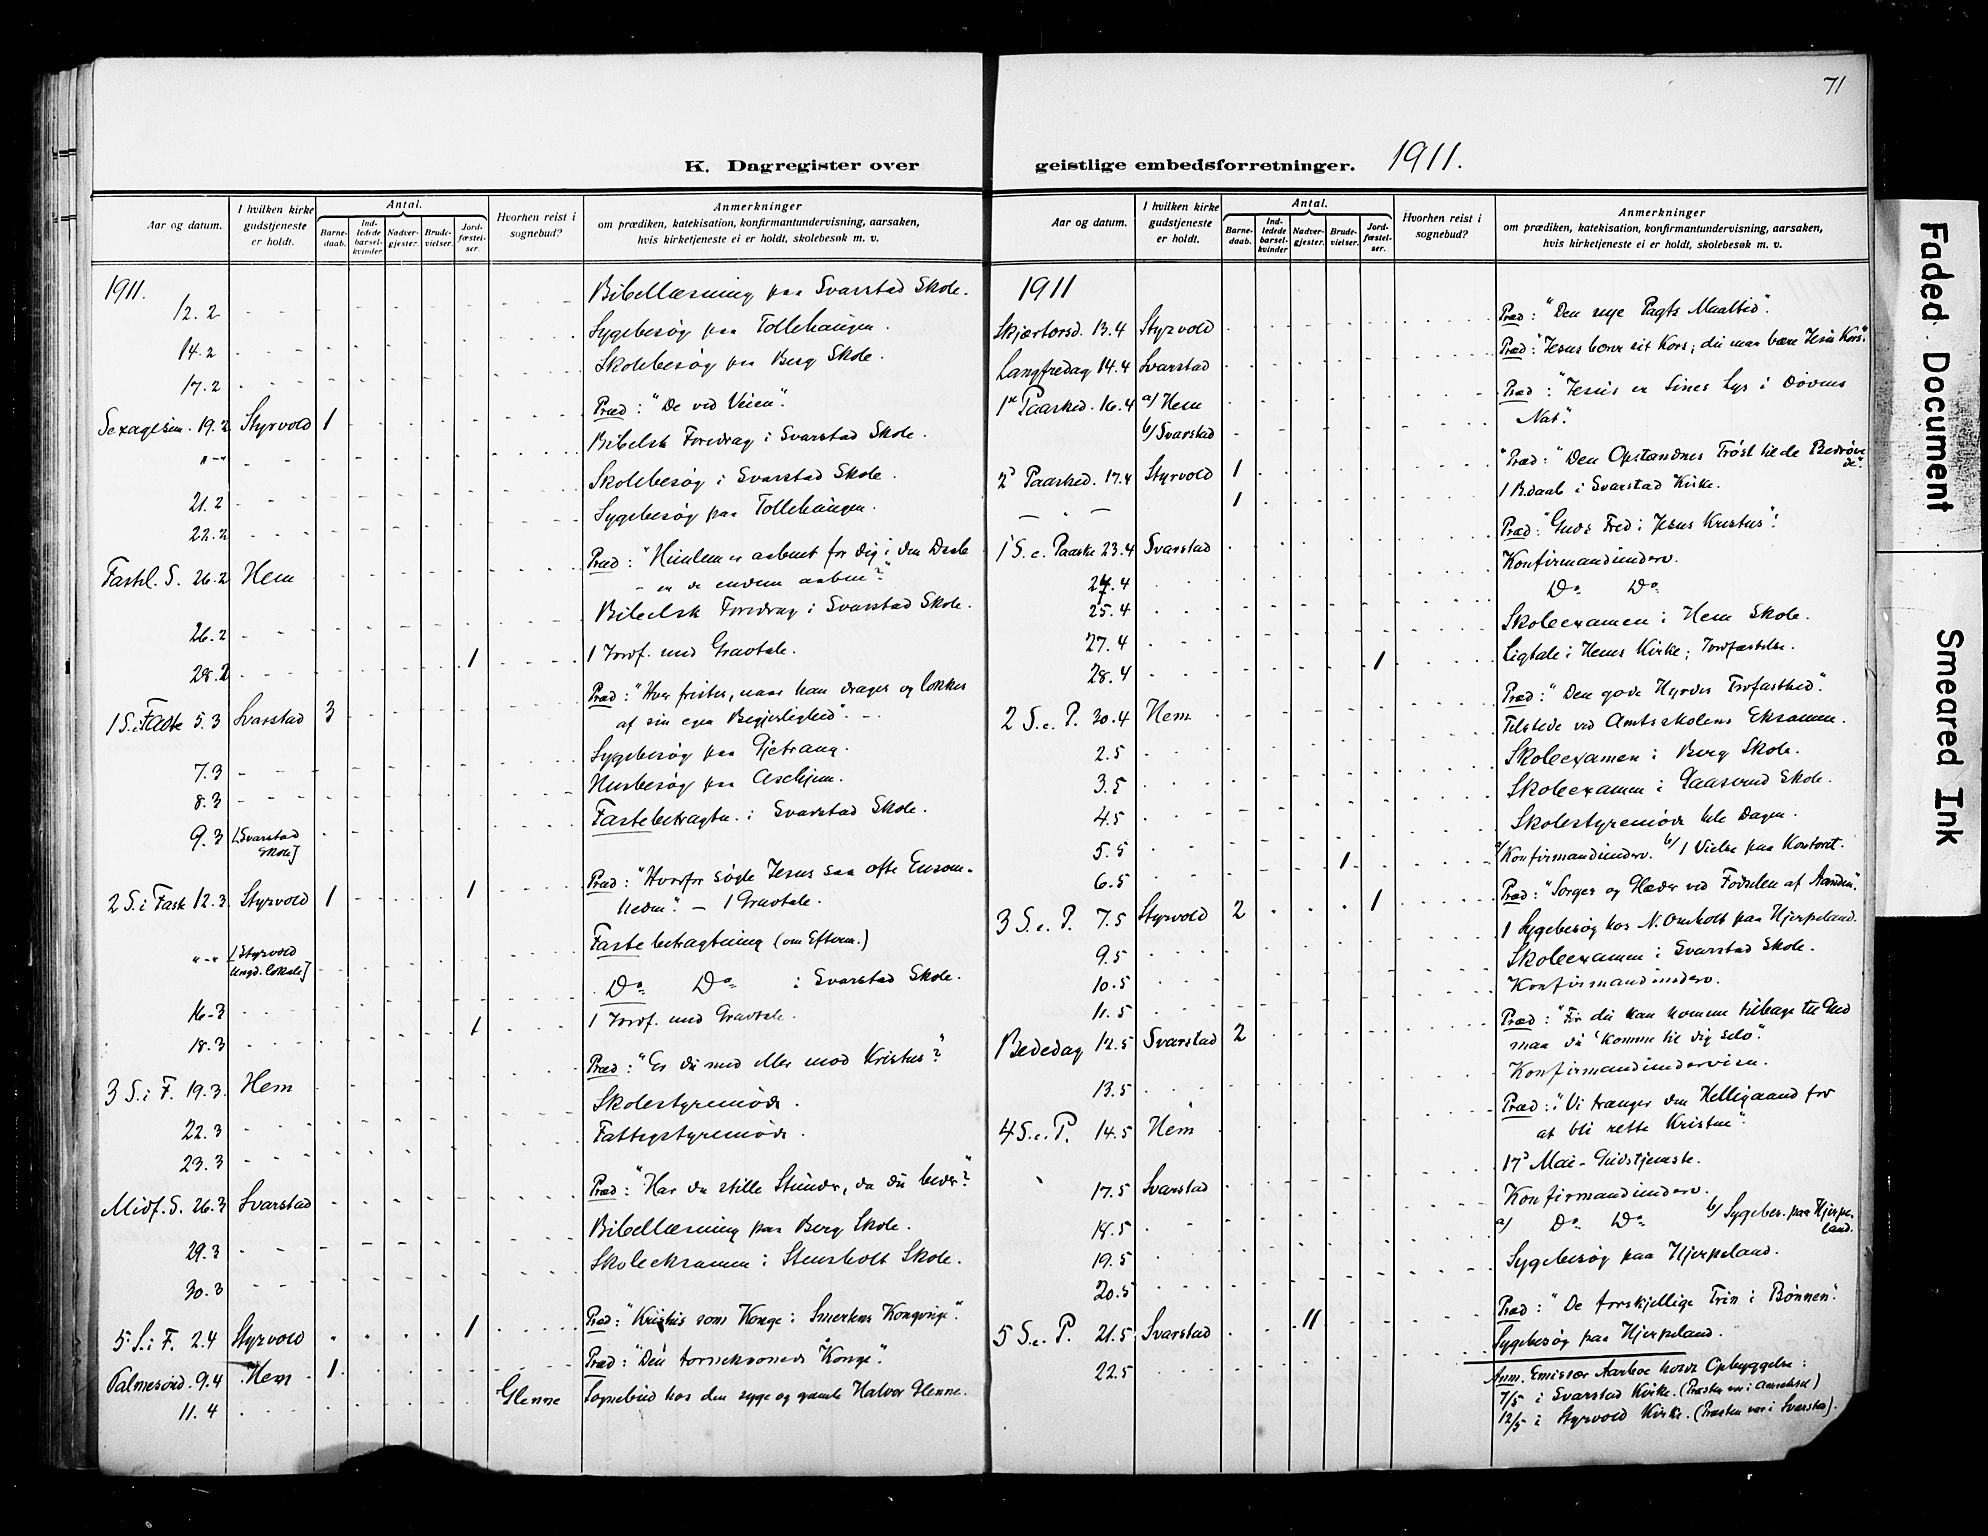 71
K. Dagregister over
geistlige embedsforretninger. 1911.
Aar og datum. I hvilken kirke gudstjeneste er holdt. Antal. Barne-daab. Ind-ledede barsel-kvinder Nadver-gjester. Brude-vielser. Jord-fæstel-ser. Hvorhen reist i sognebud? Anmerkninger om prædiken, katekisation, konfirmantundervisning, aarsaken, hvis kirketjeneste ei er holdt, skolebesøk m. v.
1911.
12.2 Bibellæsning paa Svarstad Skole.
14.2 Sygebesøg paa Tollehaugen.
17.2 Skolebesøg paa Berg Skole.
Sexagesim. 19.2 Styrvold 1 Præd: "De ved Veien".
" - " Bibelsk Foredrag i Svarstad Skole.
21.2 Skolebesøg i Svarstad Skole.
22.2 Sygebesøg paa Tollehaugen.
Fastel. S. 26.2 Hem Præd: "Himlen er aabnet for dig i den Daab
- er de endnu aaben?"
26.2 Bibelsk Foredrag i Svarstad Skole.
28.2 1 1 Jordf. med Gravtale.
1 S. i Faste 5.3 Svarstad 3 Præd: "Hver fristes, naar han drages og lokkes
af sin egen Begjerlighed". -
7.3 Sygebesøg paa Gjetrang.
8.3 Husbesøg paa Askjem.
9.3 [Svarstad Skole] Fastebetragtn. i Svarstad Skole.
2 S. i Fast 12.3 Styrvold 1 1 Præd: "Hvorfor søgte Jesus saa ofte Ensom-
heden". - 1 Gravtale.
" - " [Styrvold Ungd. lokale] Fastebetragtning (om Efterm.)
16.3 Do Do i Svarstad Skole.
18.3 1 1 Jordf. med Gravtale.
3 S. i F. 19.3 Hem Præd: "Er du med eller mod Kristus"?
22.3 Skolestyremøde.
23.3 Fattigstyremøde.
Midf. S. 26.3 Svarstad Præd: "Har du stille Stunder, da du beder"?
29.3 Bibellæsning paa Berg Skole.
30.3 Skoleeksamen i Stensholt Skole.
5 S. i F. 2.4 Styrvold 1 Præd: "Kristus som Konge i Smertens Kongerige".
Palmesønd. 9.4 Hem 1 Præd: "Den tornekronede Konge".
11.4 Glenne Sognebud hos den syge og gamle Halvor Glenne.
Aar og datum. I hvilken kirke gudstjeneste er holdt. Antal. Barne-daab. Ind-ledede barsel-kvinder Nadver-gjester. Brude-vielser. Jord-fæstel-ser. Hvorhen reist i sognebud? Anmerkninger om prædiken, katekisation, konfirmantundervisning, aarsaken, hvis kirketjeneste ei er holdt, skolebesøk m. v.
1911
Skjærtorsd. 13.4 Styrvold Præd: "Den nye Pagts Maaltid".
Langfredag 14.4 Svarstad Præd: "Jesus bærer sit Kors; du maa bære Jesu Kors".
1ste Paasked. 16.4 a/ Hem Præd: "Jesus er Sines Lys i Dødens
b/ Svarstad Nat".
2d Paasked. 17.4 Styrvold 1 Præd: "Den Opstandnes Trøst til de Bedrøvede".
- " - 1 1 B.daab i Svarstad Kirke.
1 S. e. Paaske 23.4 Svarstad Præd: "Guds Fred i Jesus Kristus".
24.4 Konfirmandunderv.
25.4 Do Do
27.4 Skoleexamen i Hem Skole.
28.4 1 Ligtale i Hems Kirke; Jordfæstelse.
2 S. e. P. 30.4 Hem Præd: "Den gode Hyrdes Trofasthed".
2.5 Tilstede ved Amtsskolens Eksamen.
3.5 Skoleexamen i Berg Skole.
4.5 Skoleexamen i Gaaserud Skole.
5.5 Skolestyremøde hele Dagen.
6.5 1 a/ Konfirmandunderv. b/ 1 Vielse paa Kontoret.
3 S. e. P. 7.5 Styrvold 2 1 Præd: "Sorger og Glæder ved Fødselen af Aanden".
9.5 1 Sygebesøg hos N. Omholt paa Hjerpeland.
10.5 Skoleexamen i Svarstad Skole.
11.5 Konfirmandunderv.
Bededag 12.5 Svarstad 2 Præd: "Før du kan komme tilbage til Gud
maa du komme til dig selv".
13.5 Konfirmandundervisn.
4 S. e. P. 14.5 Hem Præd: "Vi trænger den Helligaand for
at bli rette Kristne".
17.5 Svarstad 17d Mai-Gudstjeneste.
18.5 Konfirmandunderv.
19.5 a/ Do Do b/ Sygebes. paa Hjerpeland.
20.5 Sygebesøg paa Hjerpeland.
5 S. e. P. 21.5 Svarstad 11 Præd: "De forskjellige Trin i Bønnen".
22.5 Sygebesøg paa Hjerpeland.
Anm. Emissær Aarhoe holdt Opbyggelse:
7/5 i Svarstad Kirke. (Præsten var i )
12/5 i Styrvold Kirke. (Præsten var i Svarstad).
Faded Document
Smeared Ink